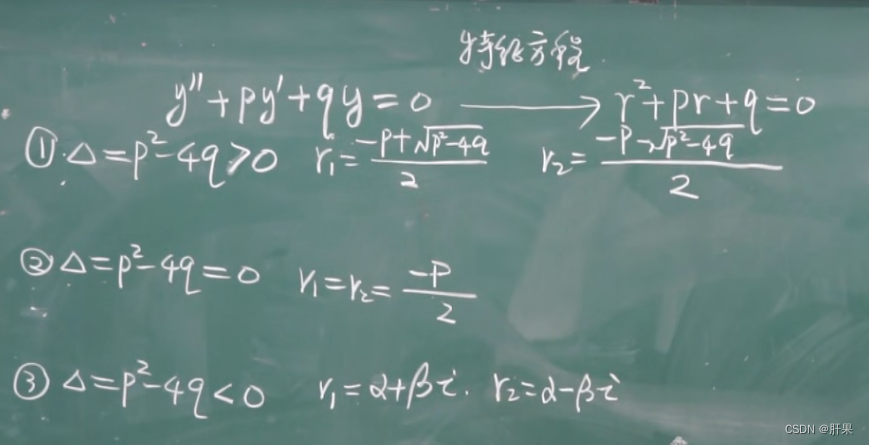 特征方程
y''+py'+qy=0 ⟶ r²+pr+q=0
① Δ=p²-4q>0 r₁=(-p+√(p²-4q))/2 r₂=(-p-√(p²-4q))/2
② Δ=p²-4q=0 r₁=r₂=-p/2
③ Δ=p²-4q<0 r₁=α+βi. r₂=α-βi
CSDN @肝果